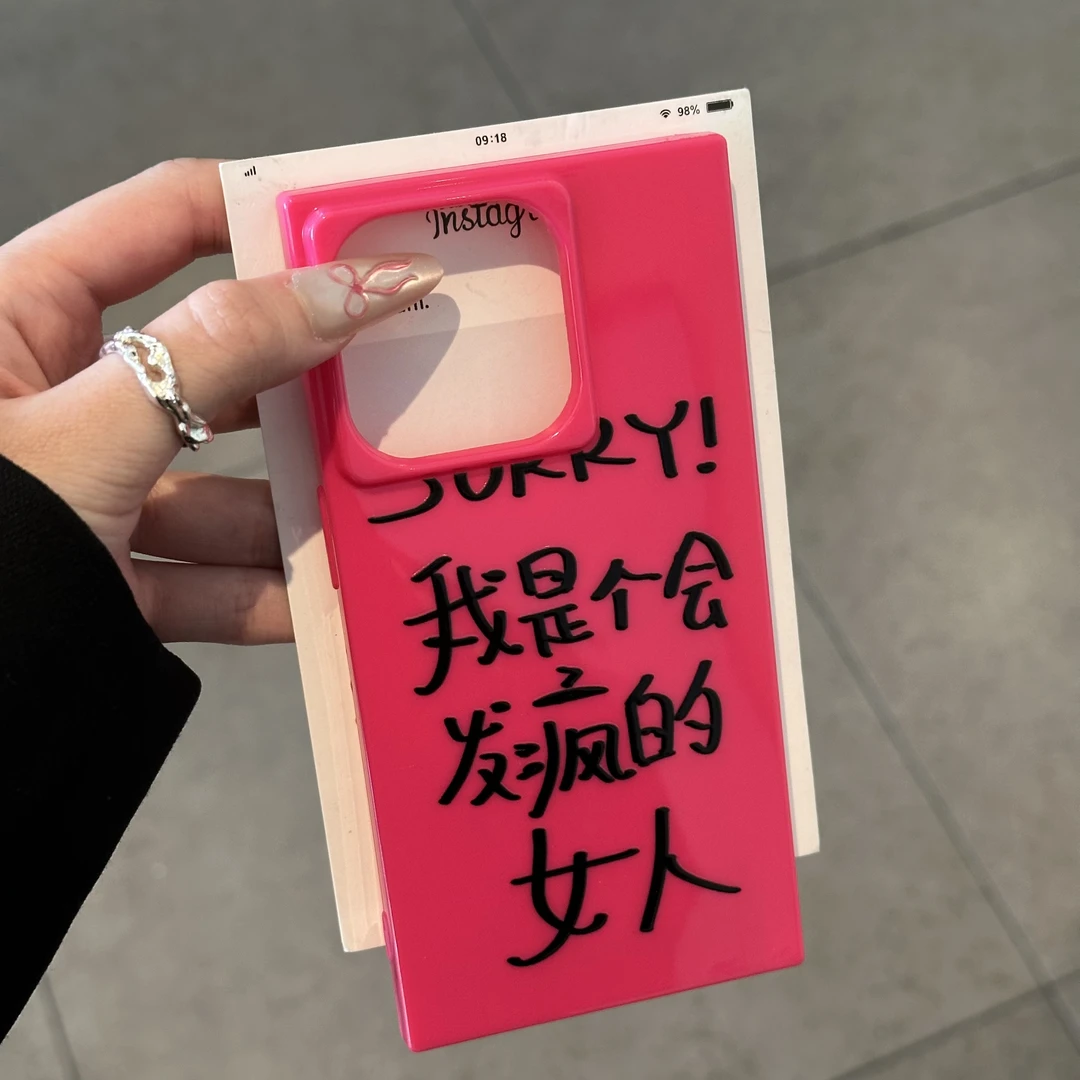 09:18
98%
Instagr
SORRY!
我是个会
发疯的
女人